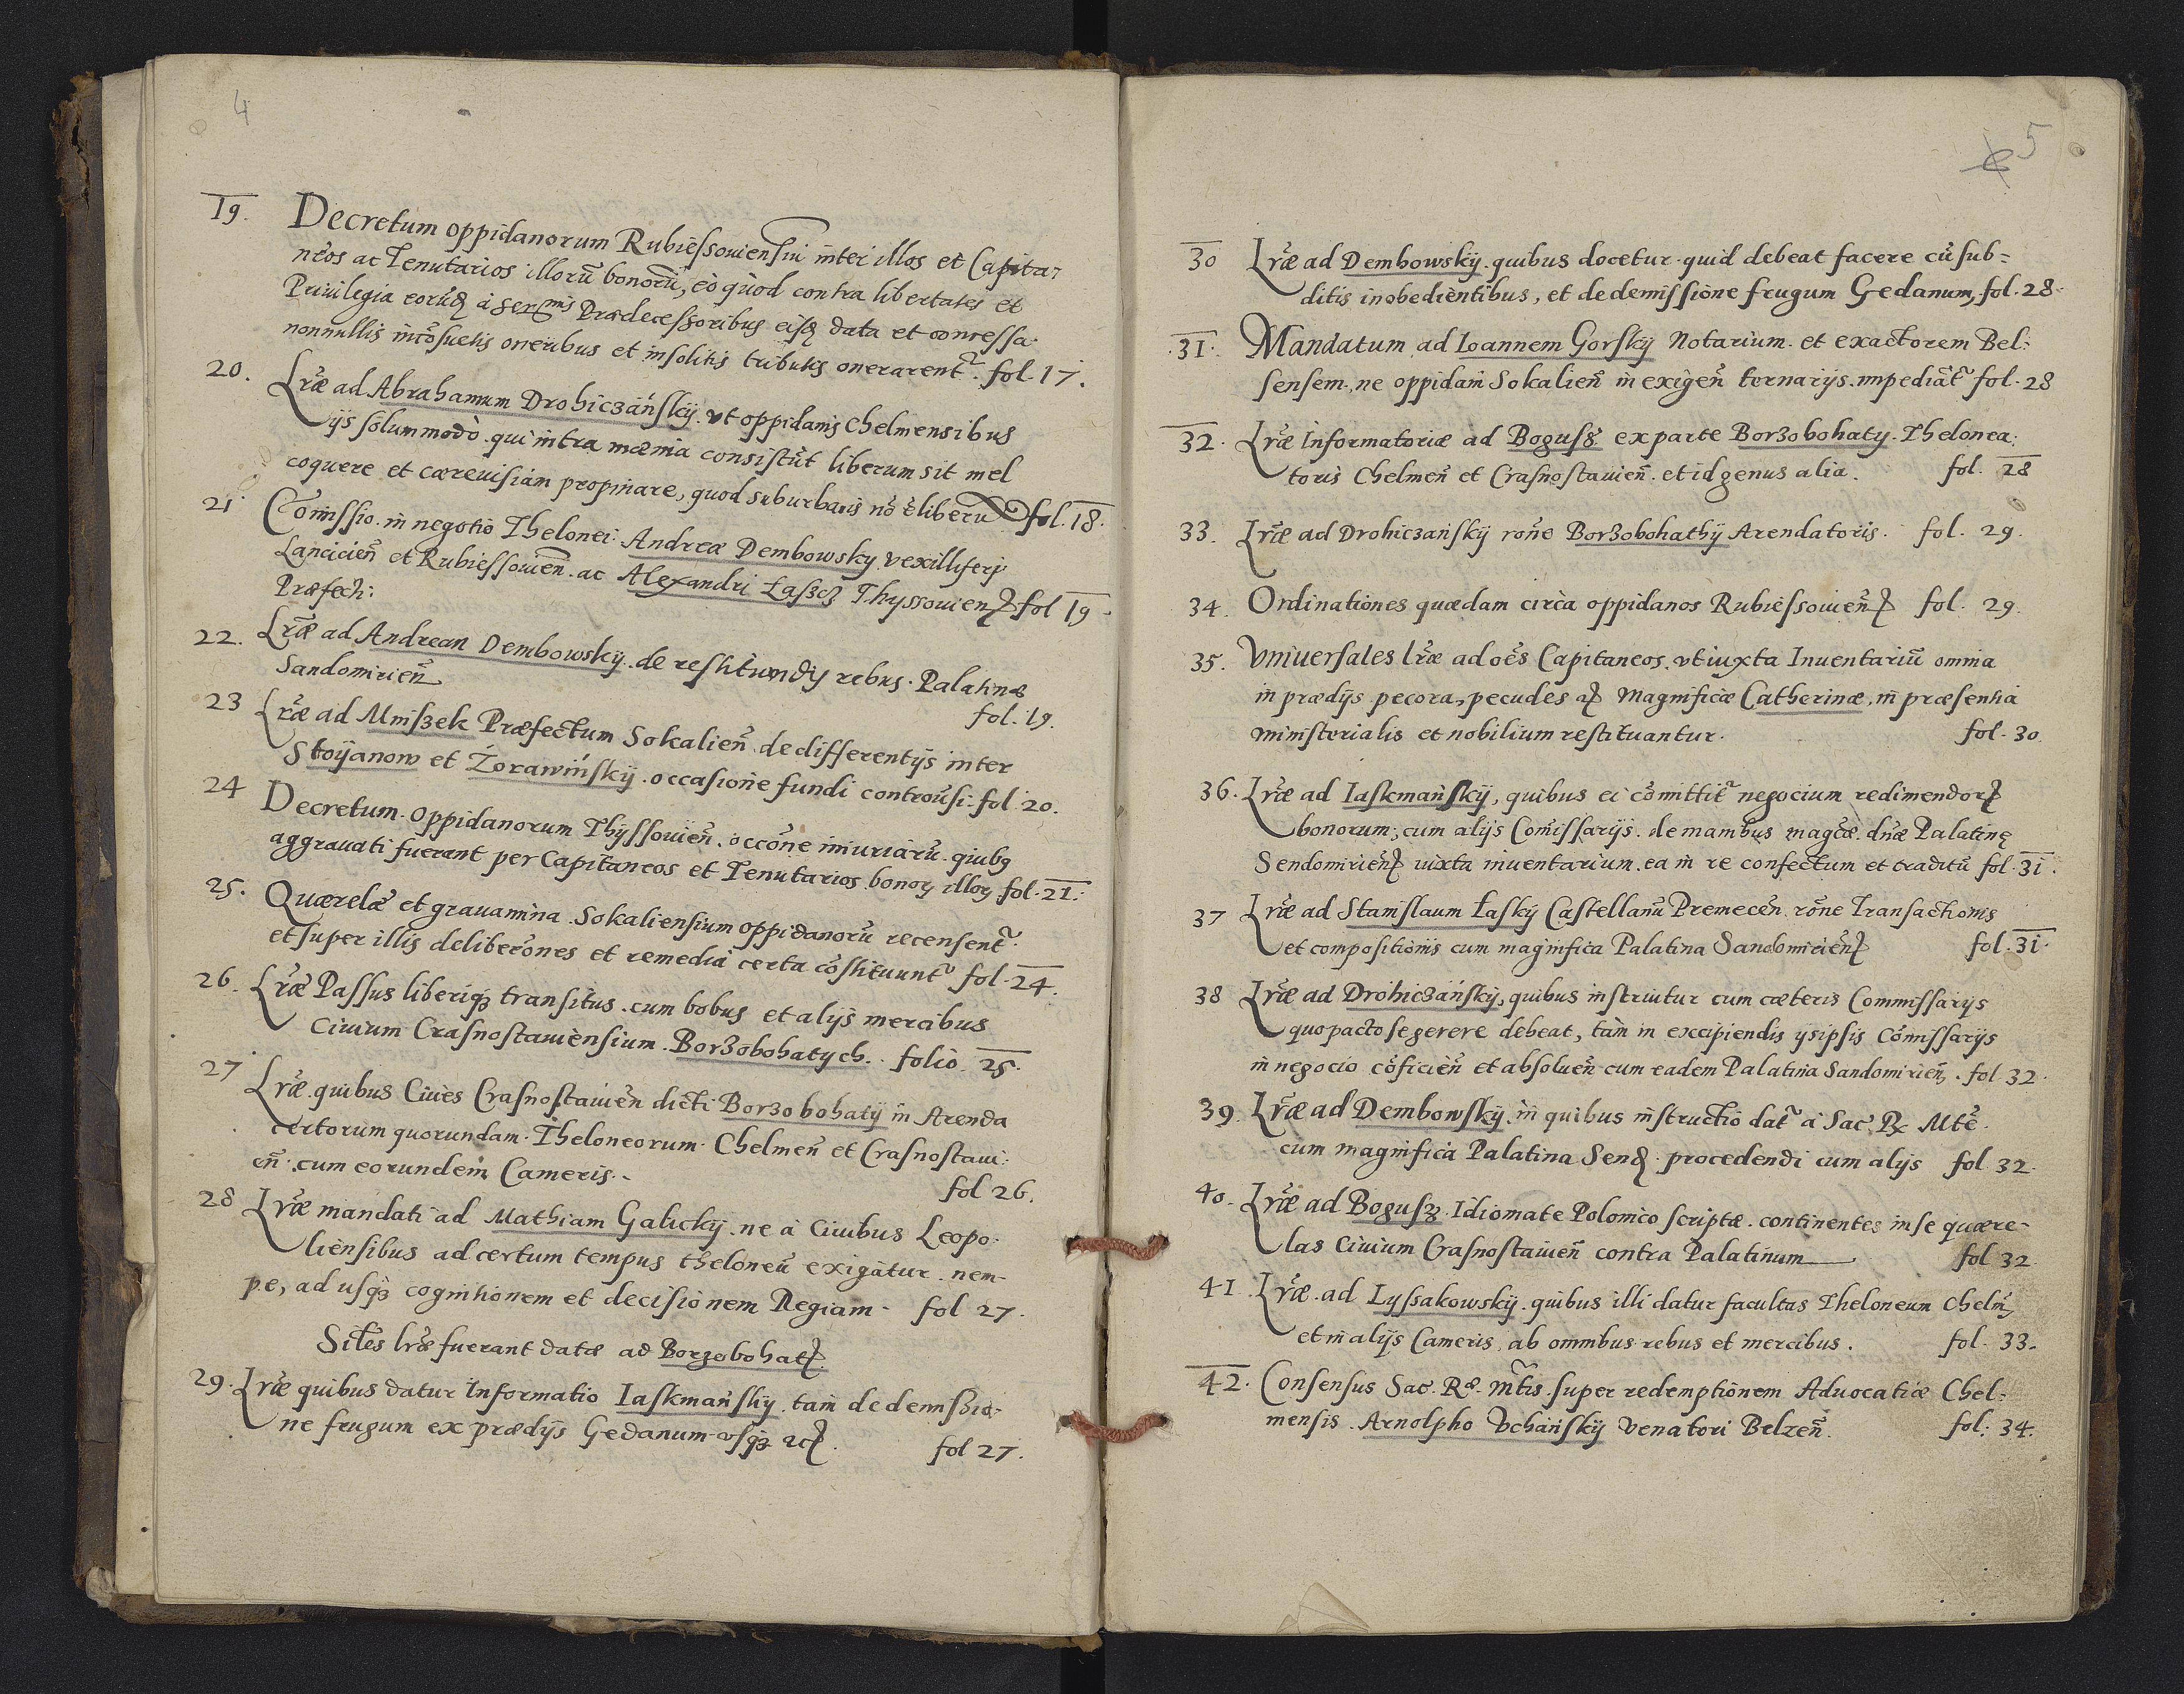 4
19. Decretum oppidanorum Rubiessouiensiũ inter illos et Capita-
neos ac Tenutarios illorũ bonorũ, eo quod contra libertates et
Priuilegia eorũd à Sermis Prædecessoribus eisd data et concessa
nonnullis incõsuetis oneribus et insolitis tributis onerarent~. fol. 17.
20. Lr̃æ ad Abrahamum Drohiczánskÿ. vt oppidanis Chelmensibus
ÿs solummodò qui intra mænia consistũt liberum sit mel
coquere et cæreuisiam propinare, quod suburbanis nõ ẽ liberũ fol. 18.
21 Com̃issio in negotio Thelonei Andreæ Dembowsky vexilliferi
Lancicieñ et Rubiessouieñ. ac Alexandri Łaszcz Thyssouieñ fol 19.
Præfecti:
22. Lr̃æ ad Andream Dembowskÿ. de restituendÿs rebus Palatinæ
Sandomirieñ fol. 19.
23 Lr̃æ ad Mniszek Præfectum Sokalieñ de differentÿs inter
Stoÿanow et Żórawińskÿ. occasione fundi controũsi. fol. 20.
24 Decretum. Oppidanorum Thÿssouieñ. occõne iniuriarũ. quibg
aggrauati fuerant per Capitaneos et Tenutarios bonoꝝ illoꝝ fol. 21.
25. Quærelæ et grauamina Sokaliensium oppidanorũ recensent~.
et super illis deliberões et remedia certa cõstituunt~ fol. 24.
26. Lr̃æ Passus liberiqꝫ transitus cum bobus et alÿs mercibus
Ciuium Crasnostauiensium. Borzobohatych. folio 25.
27 Lr̃æ quibus Ciues Crasnostauieñ dicti Borzobohatÿ in Arenda
certorum quorundam Theloneorum Chelmeñ et Crasnostaui:
eñ. cum eorundem Cameris. fol 26.
28 Lr̃æ mandati ad Mathiam Galickÿ. ne à Ciuibus Leopo-
liensibus ad certum tempus theloneũ exigatur nem-
pe, ad usqꝫ cognitionem et decisionem Regiam. fol 27.
Siles lr̃æ fuerant datæ ad Borzobohat
29. Lr̃æ quibus datur Informatio Iaskmańskÿ. tam de demissio-
ne frugum ex prædÿs Gedanum usqꝫ etc. fol 27.
5
30 Lr̃æ ad Dembowskÿ. quibus docetur quid debeat facere cũ sub=
ditis inobedientibus, et de demissione frugum Gedanum, fol. 28.
31. Mandatum ad Ioannem Gorskÿ Notarium et exactorem Bel:
sensem, ne oppidani Sokalieñ in exigeñ ternarÿs. impediãt~ fol. 28
32. Lr̃æ Informatoriæ ad Bogusz ex parte Borzobohaty. Thelonea:
toris Chelmeñ et Crasnostauieñ. et id genus alia. fol. 28
33. Lr̃æ ad Drohiczańskÿ rõne Borzobohathÿ Arendatoris. fol. 29.
34. Ordinationes quædam circa oppidanos Rubiessouieñ fol. 29.
35. Vniuersales lr̃æ ad oẽs Capitaneos. vt iuxta Inuentariũ omnia
in prædÿs pecora, pecudes etc Magnificæ Catherinæ, in præsentia
ministerialis et nobilium restituantur. fol. 30.
36. Lr̃æ ad Iaskmańskÿ, quibus ei cõmittit~ negocium redimendoꝝ
bonorum, cum alÿs Com̃issarÿs. de manibus magcæ. dñæ Palatinę
Sendomirieñ iuxta inuentarium ea in re confectum et traditũ fol. 31.
37 Lr̃æ ad Stanislaum Łaskÿ Castellanũ Premeceñ rõne Transactionis
et compositionis cum magnifica Palatina Sandomirieñ fol. 31.
38 Lr̃æ ad Drohiczańskÿ, quibus instruitur cum cæteris Commissarÿs
quo pacto se gerere debeat, tam in excipiendis ÿs ipsis Com̃issarÿs
in negocio cõficieñ et absolueñ cum eadem Palatina Sandomirieñ. fol 32.
39. Lr̃æ ad Dembowskÿ. in quibus instructio dat~ à Sac. Rx Mte.
cum magnifica Palatina Send. procedendi cum alÿs fol 32.
40. Lr̃æ ad Bogusz. Idiomate Polonico scriptæ. continentes in se quære-
las Ciuium Crasnostauieñ contra Palatinum fol 32.
41. Lr̃æ ad Lyssakowskÿ. quibus illi datur facultas Theloneum Chelm̃,
et in alÿs Cameris, ab omnibus rebus et mercibus. fol. 33.
42. Consensus Sac. Ræ. Mtis. super redemptionem Aduocatiæ Chel=
mensis. Arnolpho Vchańskÿ Venatori Belzeñ. fol: 34.